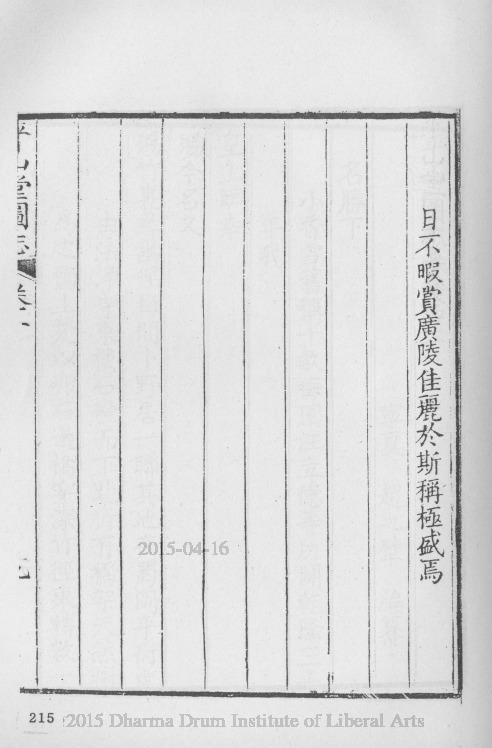 目不暇賞廣陵佳麗於斯稱極盛焉
平山堂圖志
卷
2015-04-16
215
2015 Dharma Drum Institute of Liberal Arts